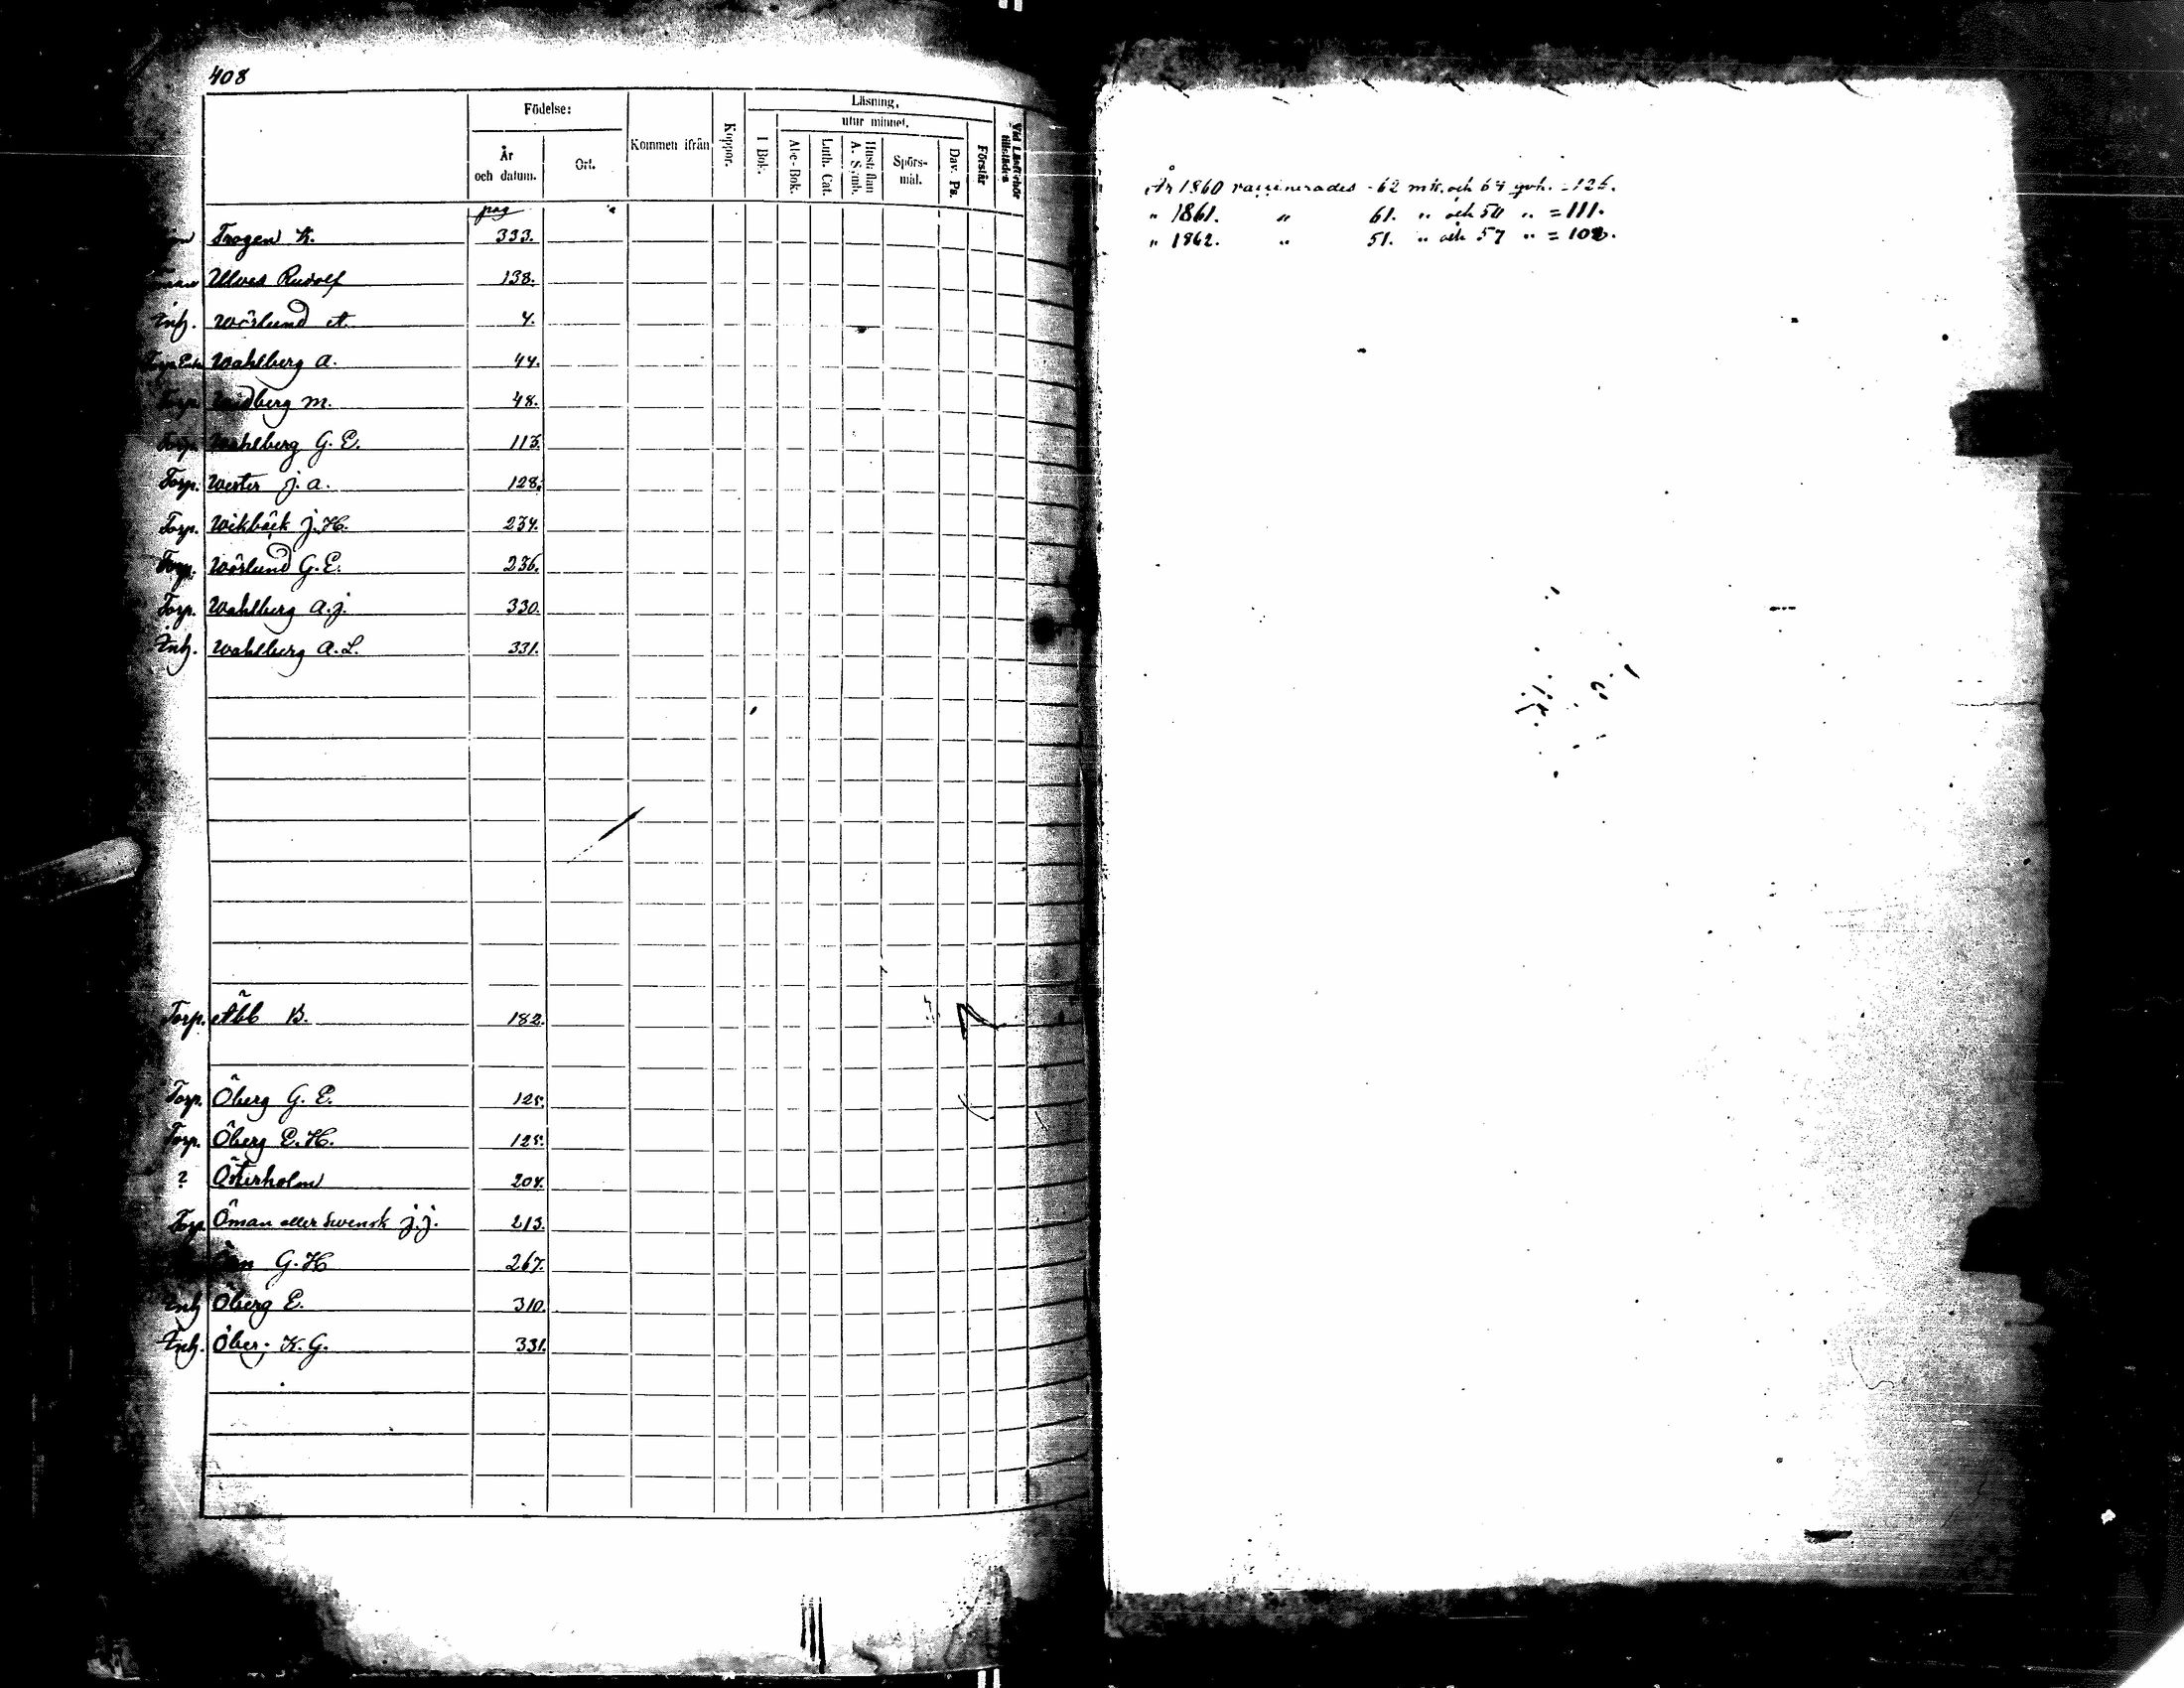 408
Födelse:
År och datum.
Ort.
Kommen ifrån
Koppor.
Läsning,
utur minnet,
I Bok.
Abc-Bok.
Luth. Cat.
Hustaflan A. Symb.
Spörs-mål.
Dav. Ps.
Förstår
Vid Läsförhör tillstädes
pag
Trogen K. 333.
Ulves Rudolf 138.
Inh. Wörlund A. 4.
Wahlberg A. 44.
Torp. Widberg M. 48.
Torp. Wahlberg G. E. 113.
Torp. Wester J. A. 128.
Torp. Wikbäck J. H. 234.
Torp. Wörlund G. E. 236.
Torp. Wahlberg A. J. 330.
Inh. Wahlberg A. L. 331.
Torp. Åbb B. 182.
Torp. Öberg G. E. 125.
Torp. Öberg E. H. 125.
? Österholm 204.
Torp Öman eller Swensk J. J. 213.
G. H 267.
Inh Öberg E. 310.
Inh. Öberg K. G. 331.
År 1860 vaccinerades - 62 mk. och 64 qvk. = 126.
" 1861. " 61. " och 50 " = 111.
" 1862. " 51. " och 57 " = 108.